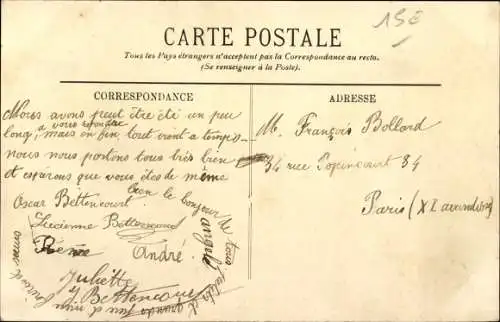 15E
CARTE POSTALE
Tous les Pays étrangers n'acceptent pas la Correspondance au recto.
(Se renseigner à la Poste).
CORRESPONDANCE
Nous avons peut être été un peu
a vous repondre
long, mais enfin, tout vient a temps
nous nous portons tous très bien
et espérons que vous êtes de même
bien le bonjour de tous
Oscar Bettencourt
Lucienne Bettencourt
André
Juliette
Bettencourt
ADRESSE
M. François Bollard
34 rue Popincourt 34
Paris (XI arrondis)